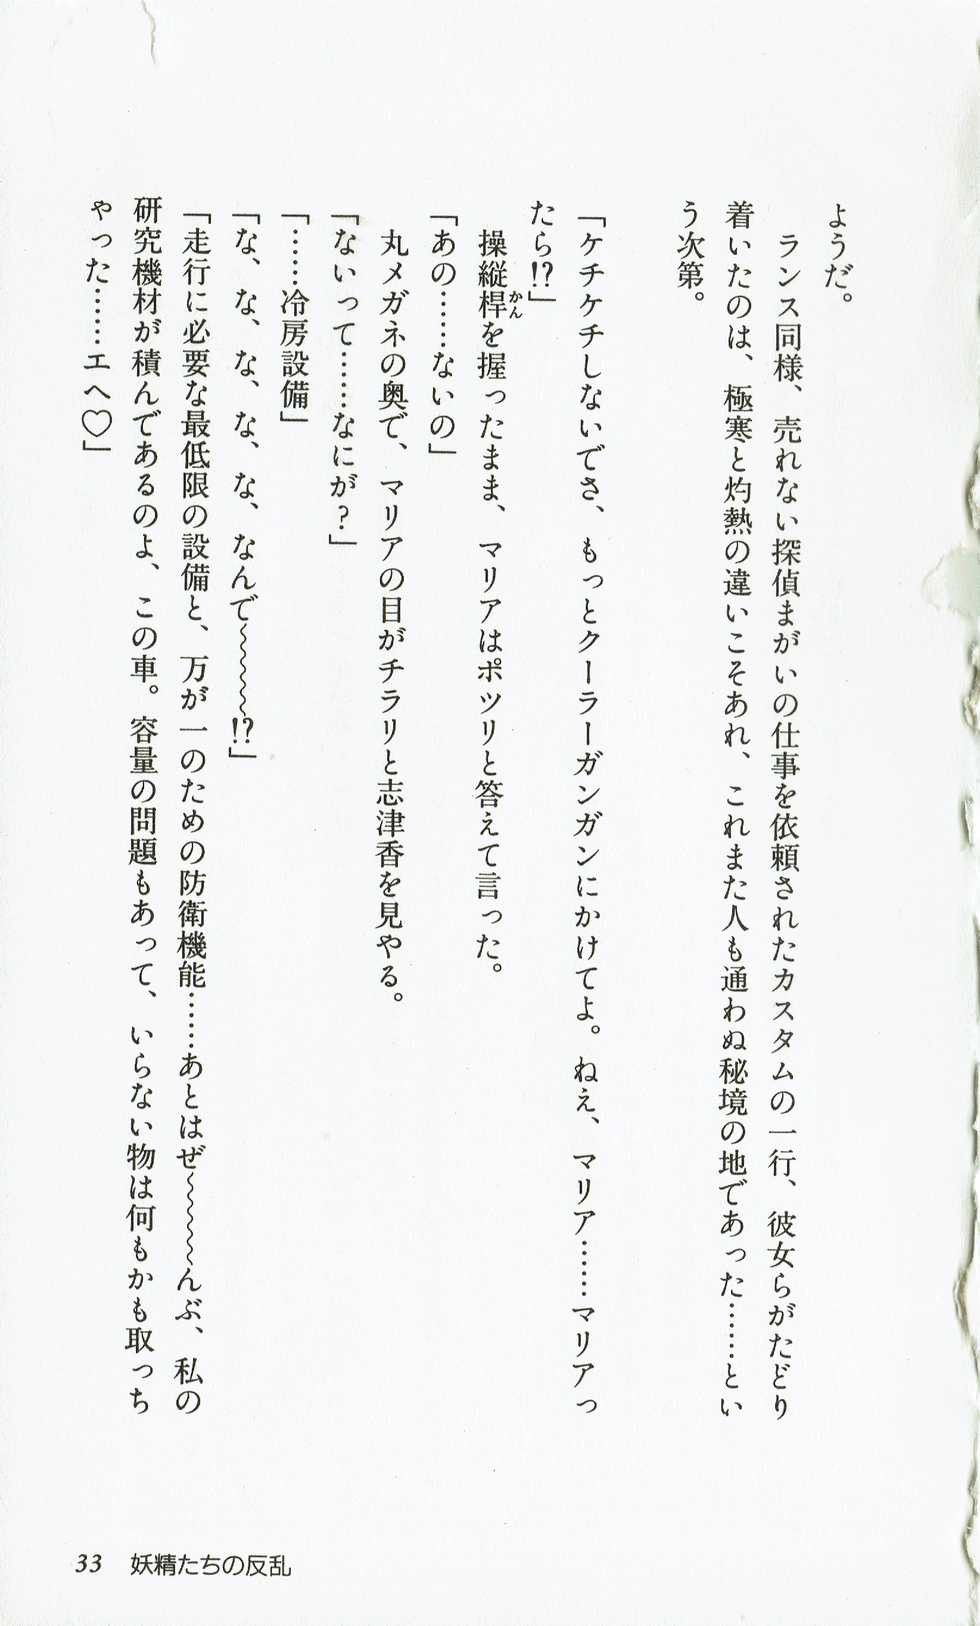 ようだ。
　ランス同様、売れない探偵まがいの仕事を依頼されたカスタムの一行、彼女らがたどり
着いたのは、極寒と灼熱の違いこそあれ、これまた人も通わぬ秘境の地であった……とい
う次第。
「ケチケチしないでさ、もっとクーラーガンガンにかけてよ。ねえ、マリア……マリアっ
たら!?」
　操縦桿を握ったまま、マリアはポツリと答えて言った。
かん
「あの……ないの」
　丸メガネの奥で、マリアの目がチラリと志津香を見やる。
「ないって……なにが？」
「……冷房設備」
「な、な、な、な、な、なんで〜〜〜〜!?」
「走行に必要な最低限の設備と、万が一のための防衛機能……あとはぜ〜〜〜〜んぶ、私の
研究機材が積んであるのよ、この車。容量の問題もあって、いらない物は何もかも取っち
ゃった……エヘ♡」
33　妖精たちの反乱